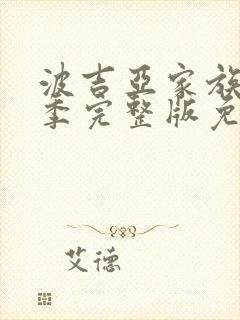 波吉亚家族
季完整版免
艾德